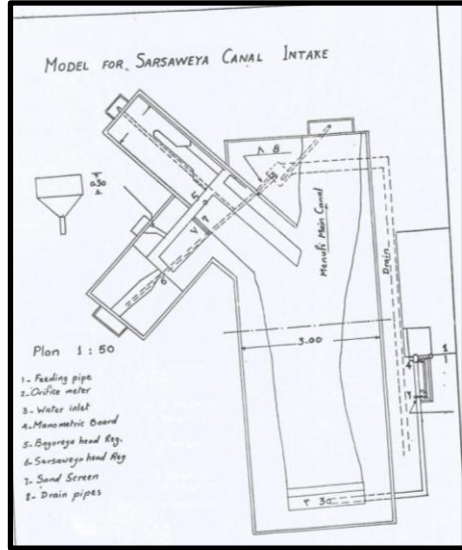 MODEL FOR SARSAWEYA CANAL INTAKE
8
0.30
5
Menufi Main Canal
Drain
6
3.00
Plan 1 : 50
1- Feeding pipe
2- Orifice meter
3- Water inlet
4- Manometric Board
5- Bagoreya head Reg.
6- Sarsaweya head Reg
7- Sand Screen
8- Drain pipes
4
1
30